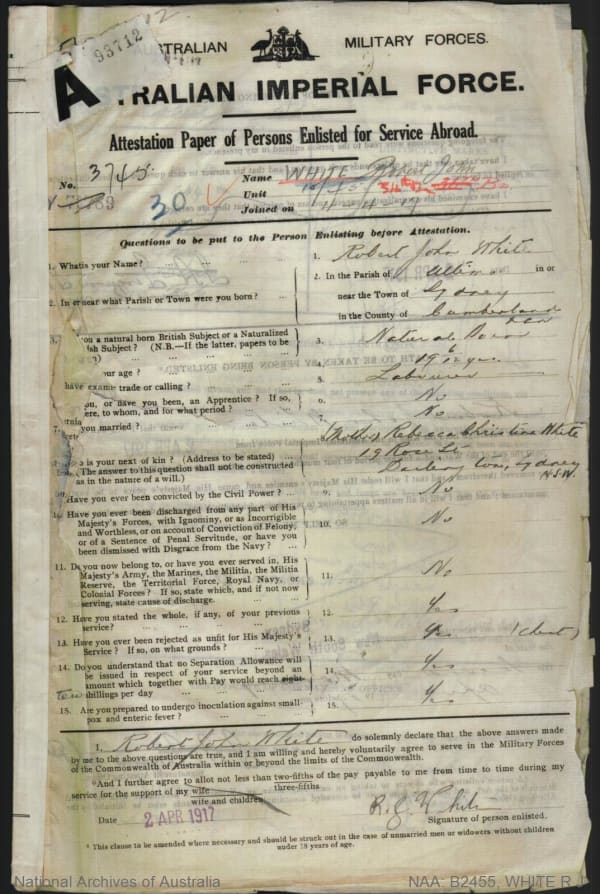 93712
STRALIAN MILITARY FORCES.
A TRALIAN IMPERIAL FORCE.
Attestation Paper of Persons Enlisted for Service Abroad.
No. 3745.
Name WHITE Robert John
30
Unit
Joined on
Questions to be put to the Person Enlisting before Attestation.
1. What is your Name? ... ...
1. Robert John White
2. In or near what Parish or Town were you born? ...
2. In the Parish of Ultimo in or
near the Town of Sydney
in the County of Cumberland
you a natural born British Subject or a Naturalized
ish Subject? (N.B.—If the latter, papers to be
3. Natural Born
our age? ...
4. 19
trade or calling? ...
5. Labourer
ou, or have you been, an Apprentice? If so,
ere, to whom, and for what period? ...
6. No
you married? ...
7. No
is your next of kin? (Address to be stated)
(The answer to this question shall not be constructed
as in the nature of a will.)
(Mother) Rebecca Christina White
19 Rose St
Darlington, Sydney
NSW
Have you ever been convicted by the Civil Power? ...
9. No
Have you ever been discharged from any part of His
Majesty's Forces, with Ignominy, or as Incorrigible
and Worthless, or on account of Conviction of Felony,
or of a Sentence of Penal Servitude, or have you
been dismissed with Disgrace from the Navy? ...
10. No
11. Do you now belong to, or have you ever served in, His
Majesty's Army, the Marines, the Militia, the Militia
Reserve, the Territorial Force, Royal Navy, or
Colonial Forces? If so, state which, and if not now
serving, state cause of discharge.
11. No
12. Have you stated the whole, if any, of your previous
service? ...
12. Yes
13. Have you ever been rejected as unfit for His Majesty's
Service? If so, on what grounds? ...
13. Yes (Chest)
14. Do you understand that no Separation Allowance will
be issued in respect of your service beyond an
amount which together with Pay would reach eight
Ten shillings per day ...
14. Yes
15. Are you prepared to undergo inoculation against small-
pox and enteric fever? ...
15. Yes
I, Robert John White do solemnly declare that the above answers made
by me to the above questions are true, and I am willing and hereby voluntarily agree to serve in the Military Forces
of the Commonwealth of Australia within or beyond the limits of the Commonwealth.
*And I further agree to allot not less than two-fifths of the pay payable to me from time to time during my
three-fifths
service for the support of my wife
wife and children
Date 2 APR 1917
R. J. White
Signature of person enlisted.
* This clause to be amended where necessary and should be struck out in the case of unmarried men or widowers without children
under 18 years of age.
National Archives of Australia
NAA: B2455, WHITE R J